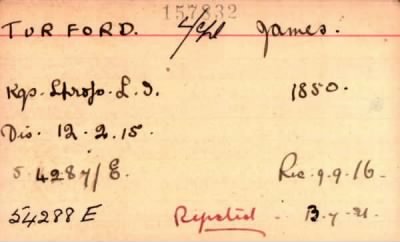 157832
TURFORD. L/Cpl James.
Kgs. Shrops. L. I. 1850.
Dis. 12. 2. 15.
5 4287/E. Rec. 9.9.16-
54288 E Repeated - 13.7.21.